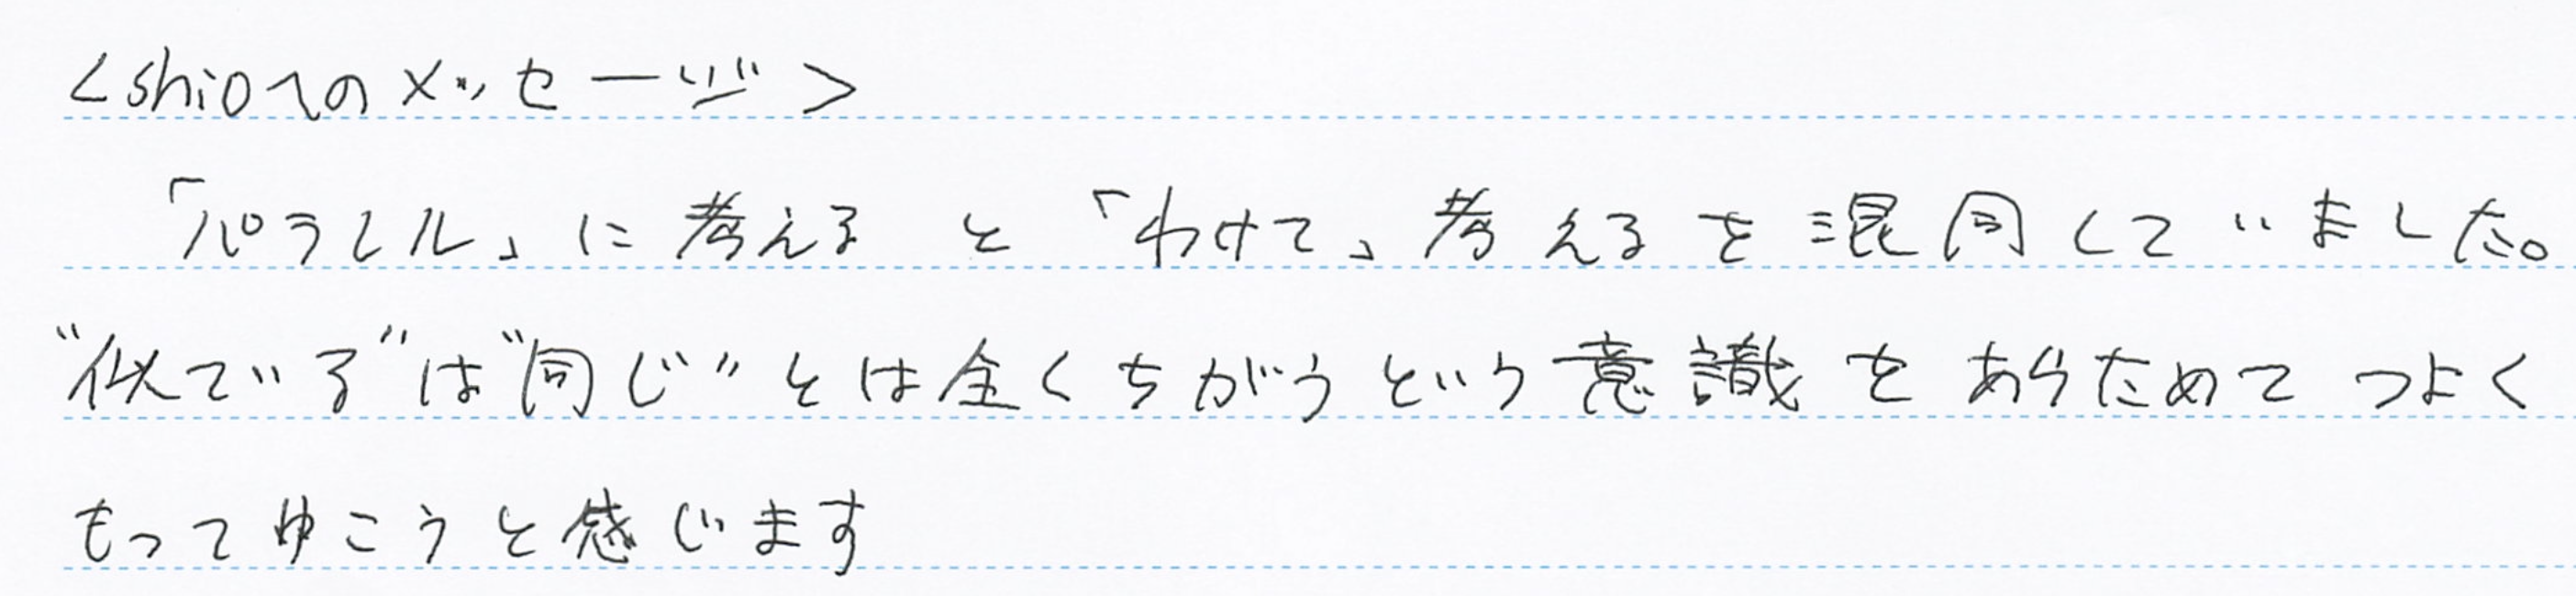 <shioへのメッセージ>
「パラレル」に考える と 「わけて」考えるを混同していました。
“似ている”は“同じ”とは全くちがうという意識をあらためてつよく
もってゆこうと感じます